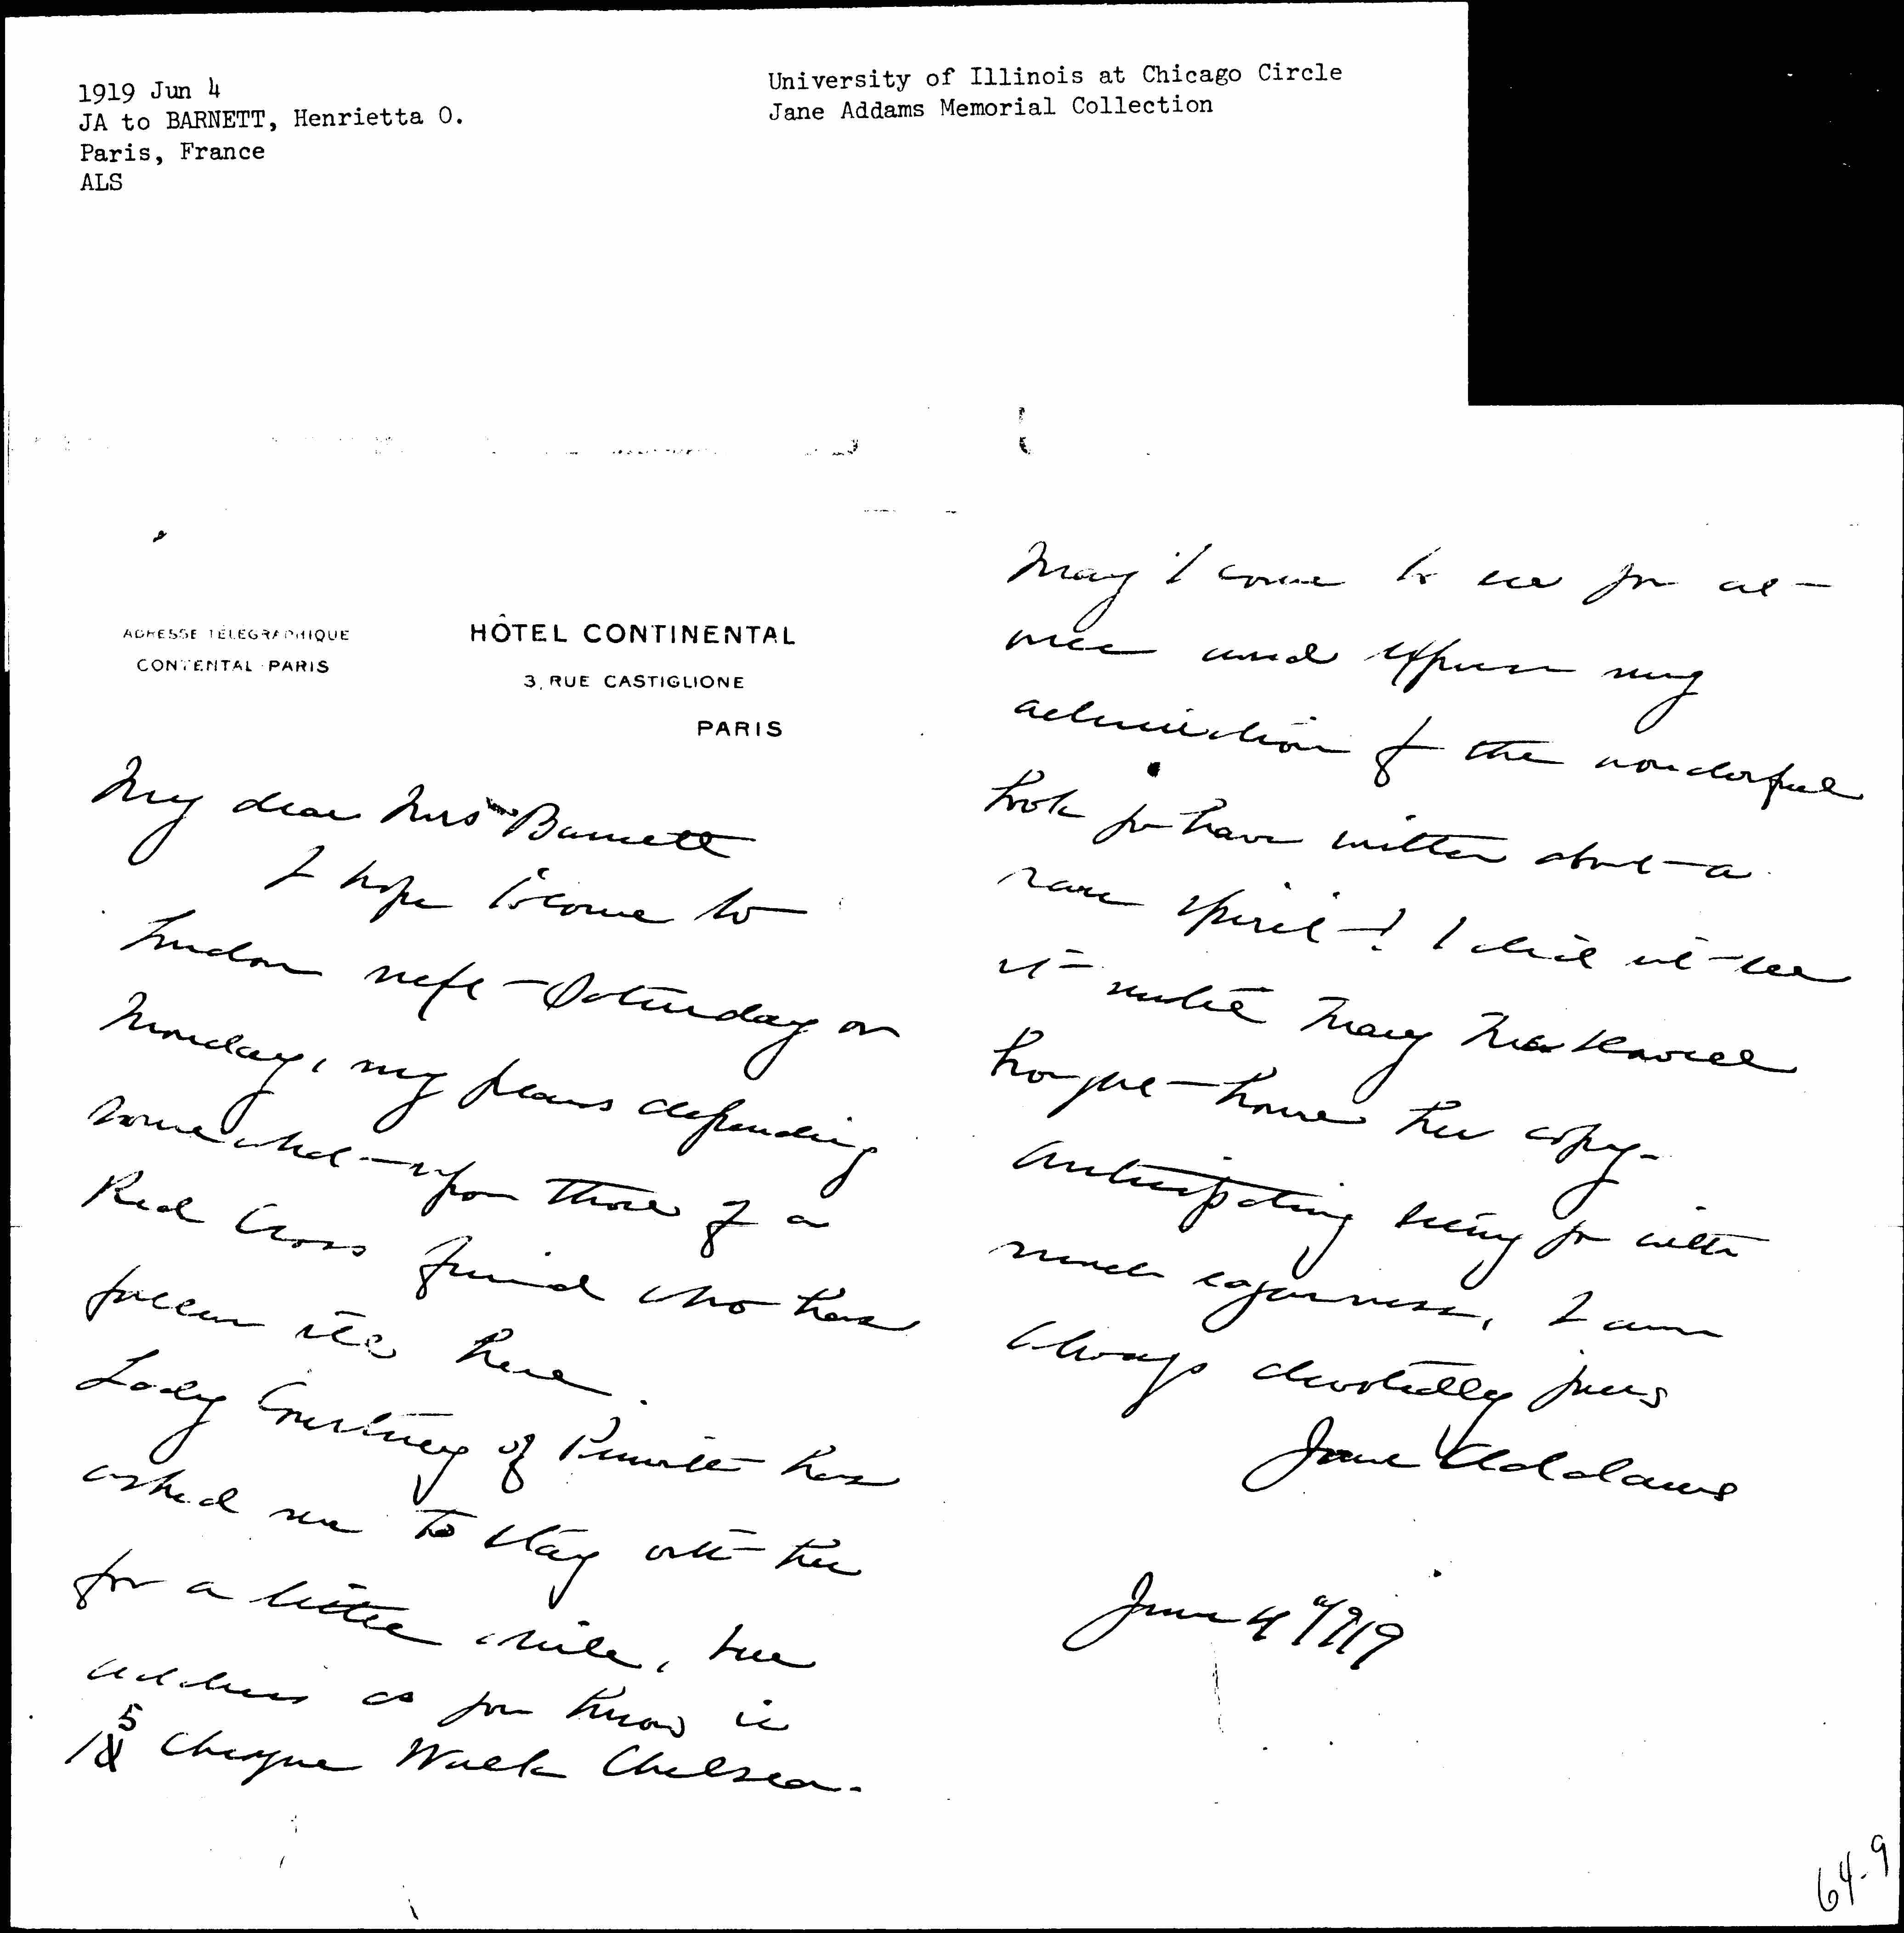 1919 Jun 4
JA to BARNETT, Henrietta O.
Paris, France
ALS
University of Illinois at Chicago Circle
Jane Addams Memorial Collection
ADRESSE TÉLÉGRAPHIQUE
CONTENTAL-PARIS
HÔTEL CONTINENTAL
3, RUE CASTIGLIONE
PARIS
My dear Mrs Barnett
I hope to come to
London next Saturday or
Monday, my plans depending
somewhat upon those of a
Red Cross friend who has
fallen ill here.
Lady Courtney of Penwith has
asked me to stay with her
for a little while, her
address as you know is
15 Cheyne Walk Chelsea.
May I come to see you at
once and express my
admiration of the wonderful
book you have written about a
rare spirit! I did not see
it until Mary
brought home her copy.
Anticipating seeing you with
much eagerness, I am
always devotedly yours
Jane Addams
June 4" 1919
64-9